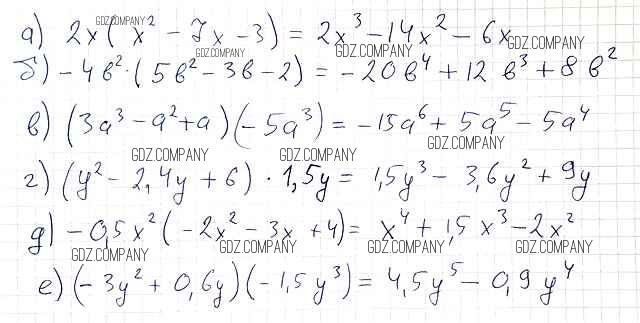 а) 2x(x² - 7x - 3) = 2x³ - 14x² - 6x
б) -4в²·(5в² - 3в - 2) = -20в⁴ + 12в³ + 8в²
в) (3a³ - a² + a)(-5a³) = -15a⁶ + 5a⁵ - 5a⁴
г) (y² - 2,4y + 6)·1,5y = 1,5y³ - 3,6y² + 9y
д) -0,5x²(-2x² - 3x + 4) = x⁴ + 1,5x³ - 2x²
е) (-3y² + 0,6y)(-1,5y³) = 4,5y⁵ - 0,9y⁴
GDZ.COMPANY
GDZ.COMPANY
GDZ.COMPANY
GDZ.COMPANY
GDZ.COMPANY
GDZ.COMPANY
GDZ.COMPANY
GDZ.COMPANY
GDZ.COMPANY
GDZ.COMPANY
GDZ.COMPANY